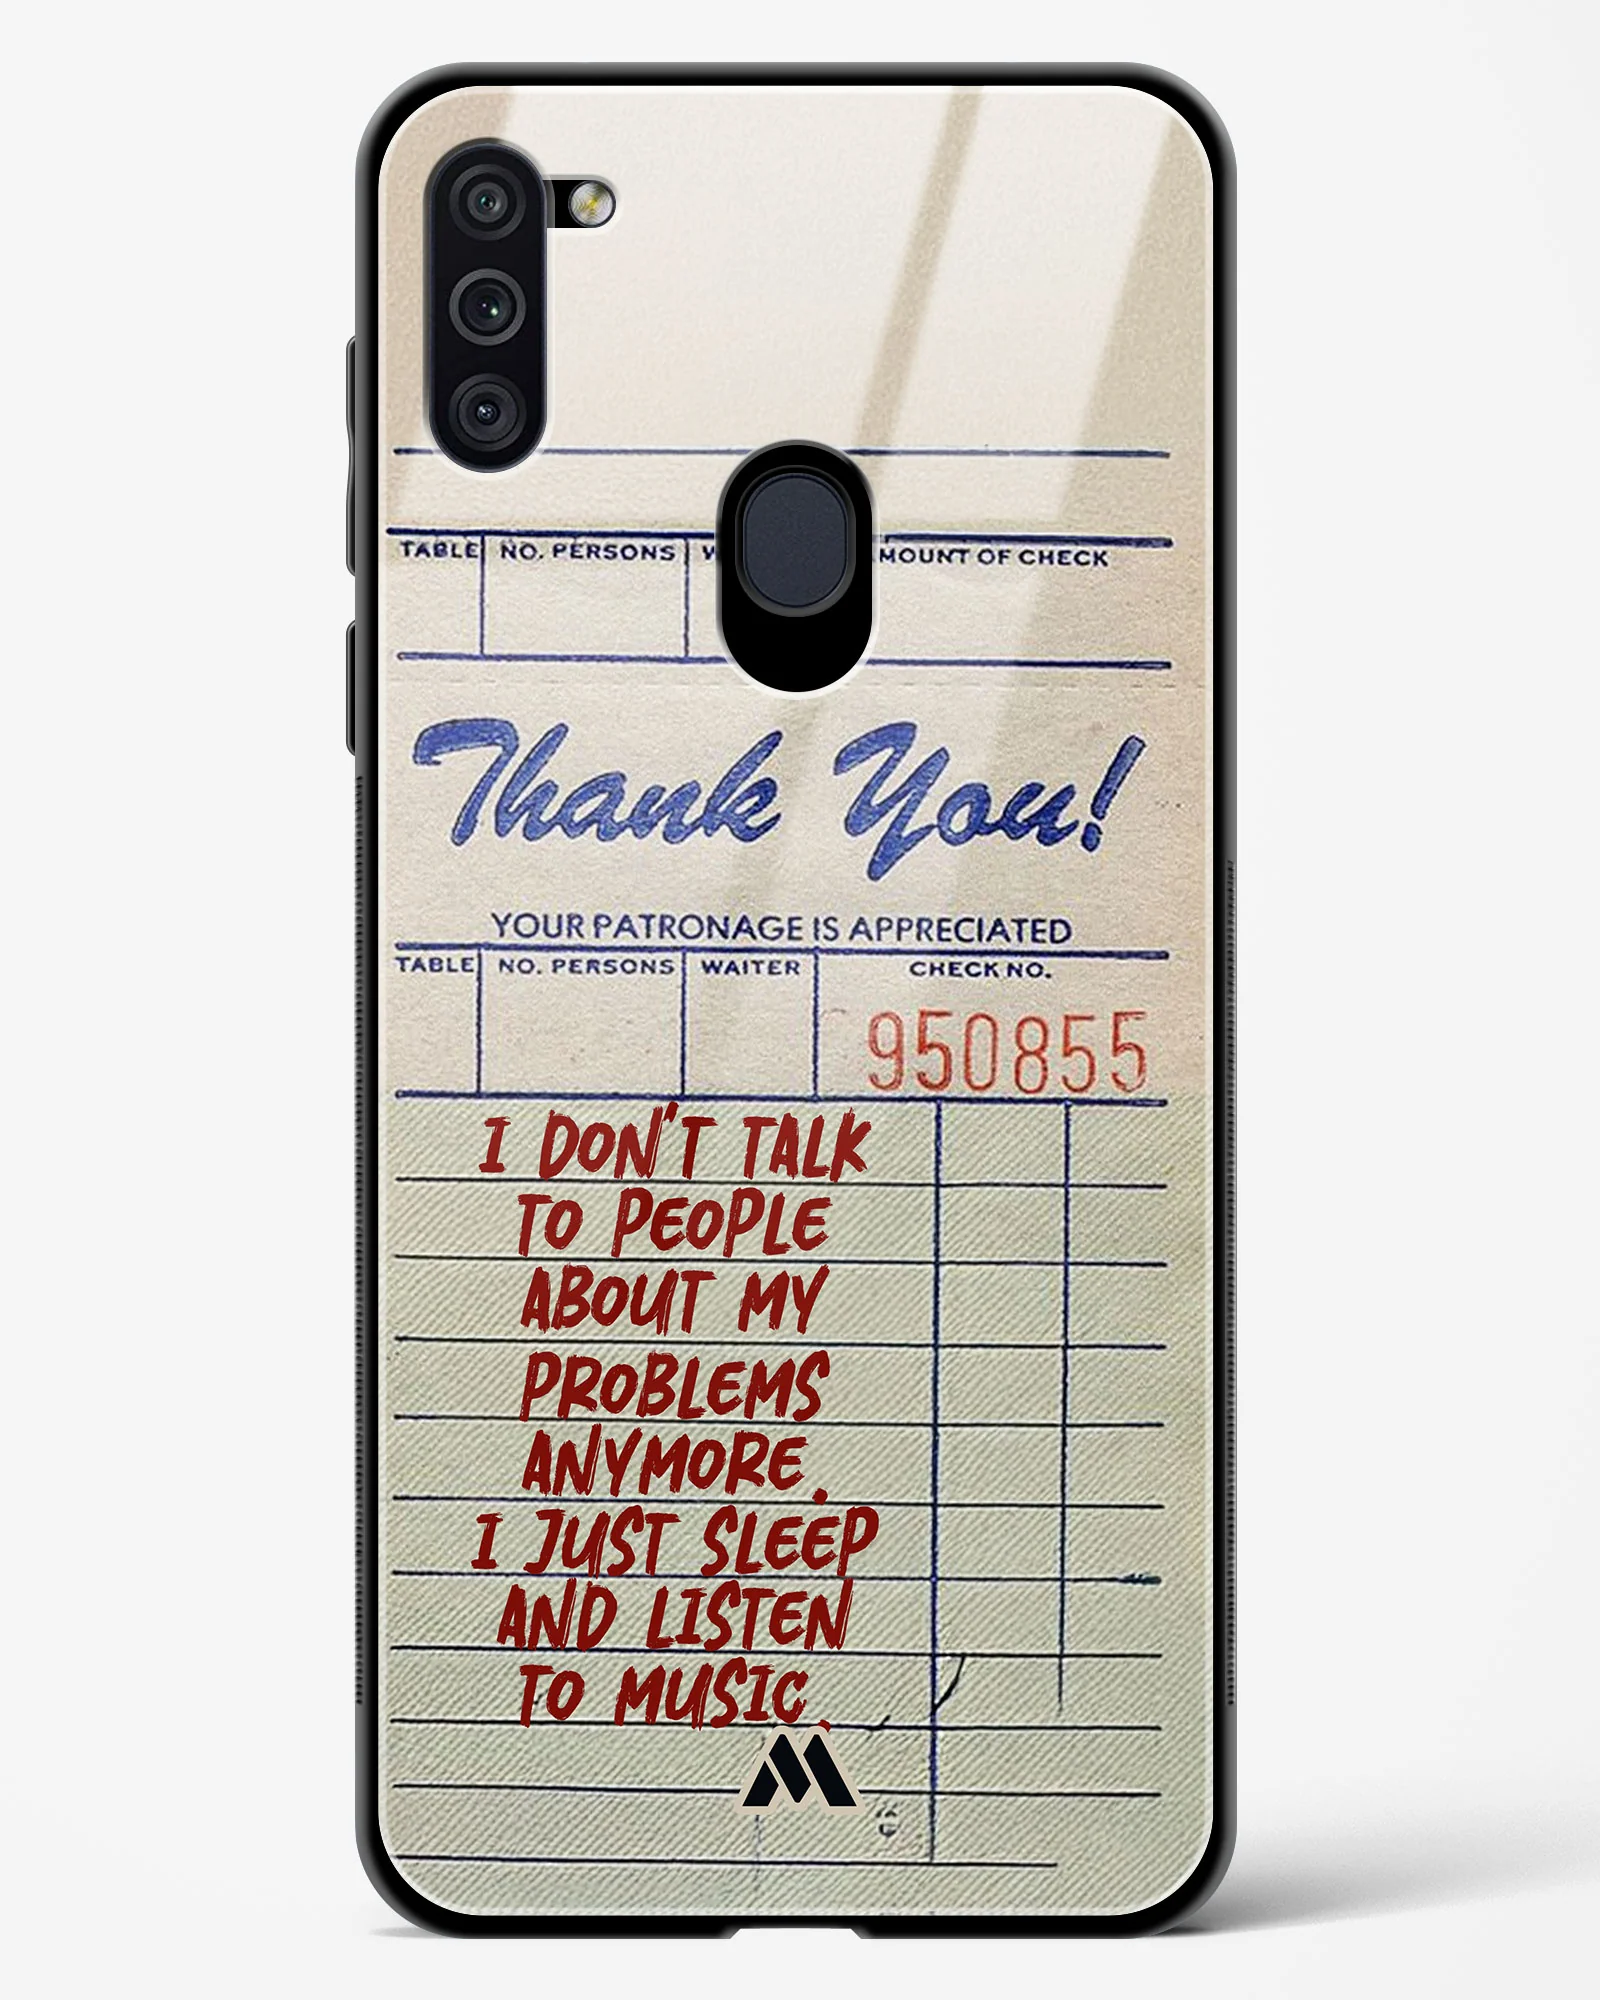 TABLE NO. PERSONS MOUNT OF CHECK
Thank You!
YOUR PATRONAGE IS APPRECIATED
TABLE NO. PERSONS WAITER CHECK NO.
950855
I DON'T TALK
TO PEOPLE
ABOUT MY
PROBLEMS
ANYMORE.
I JUST SLEEP
AND LISTEN
TO MUSIC.